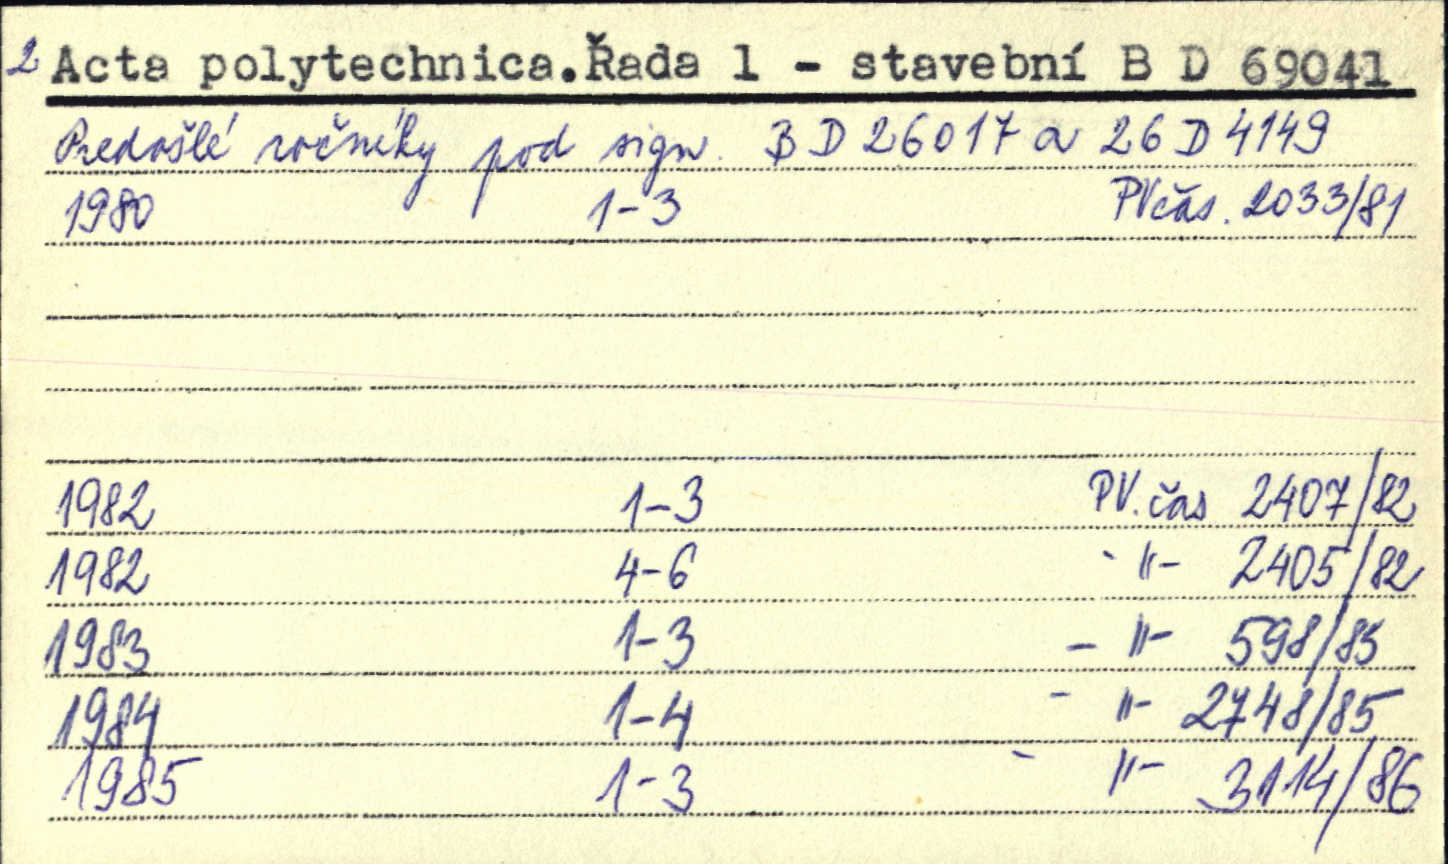 2 Acta polytechnica.Řada 1 - stavební B D 69041
Predošlé ročníky pod sign. BD 26017 a 26 D 4149
1980 1-3 PV čas. 2033/81
1982 1-3 PV. čas 2407/82
1982 4-6 -"- 2405/82
1983 1-3 -"- 598/85
1984 1-4 -"- 2748/85
1985 1-3 -"- 3114/86